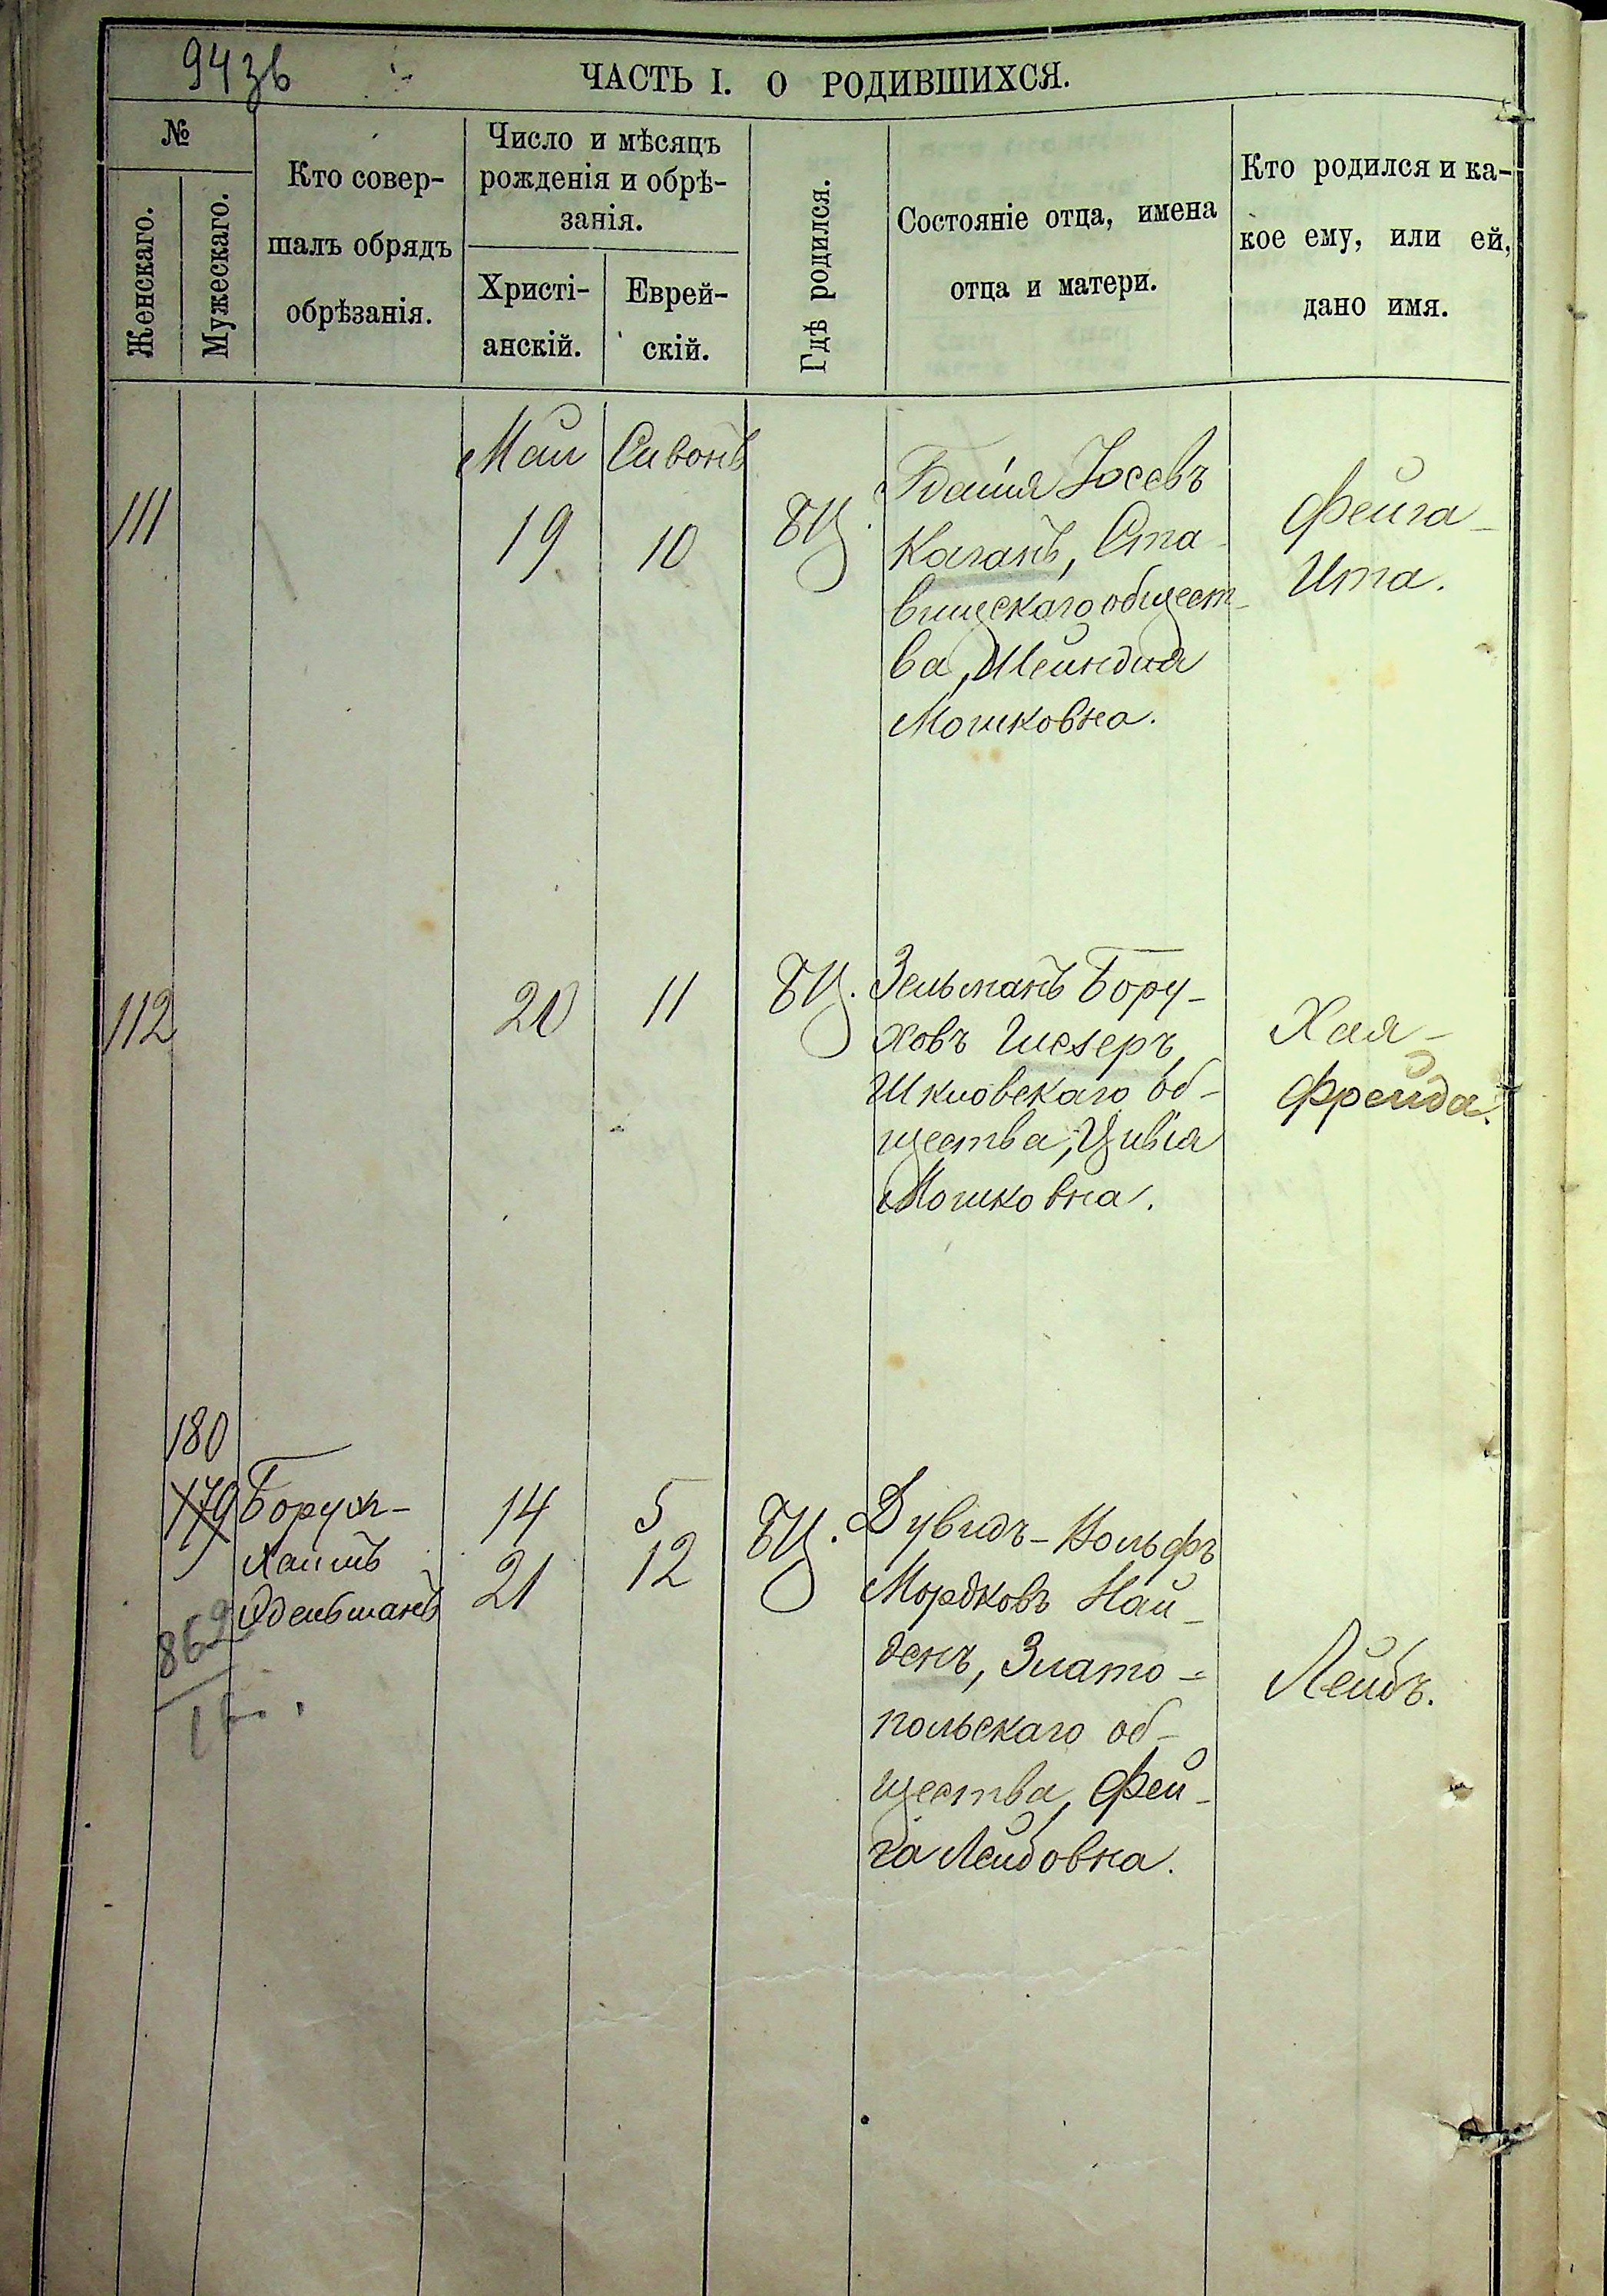 94зв
ЧАСТЬ I. О РОДИВШИХСЯ.
№
Женскаго.
Мужескаго.
Кто совер-
шалъ обрядъ
обрѣзанія.
Число и мѣсяцъ
рожденія и обрѣ-
занія.
Христі-
анскій.
Еврей-
скій.
Гдѣ родился.
Состояніе отца, имена
отца и матери.
Кто родился и ка-
кое ему, или ей,
дано имя.
Май
Сивонъ
111
19
10
БЦ.
Юсевъ
Каганъ, Ста-
вищскаго общест-
ва, Шейндля
Мошковна.
Фейга-
Ита.
112
20
11
БЦ.
Зельманъ Бору-
ховъ Глезеръ,
Шкловскаго об-
щества, Цивія
Мошковна.
Хая-
Фрейда.
180
179
Борух-
Хаимъ
Эдельманъ
14
21
5
12
БЦ.
Дувидъ-Вольфъ
Мордковъ Най-
денъ, Злато-
польскаго об-
щества, Фей-
га Лейбовна.
Лейбъ.
862